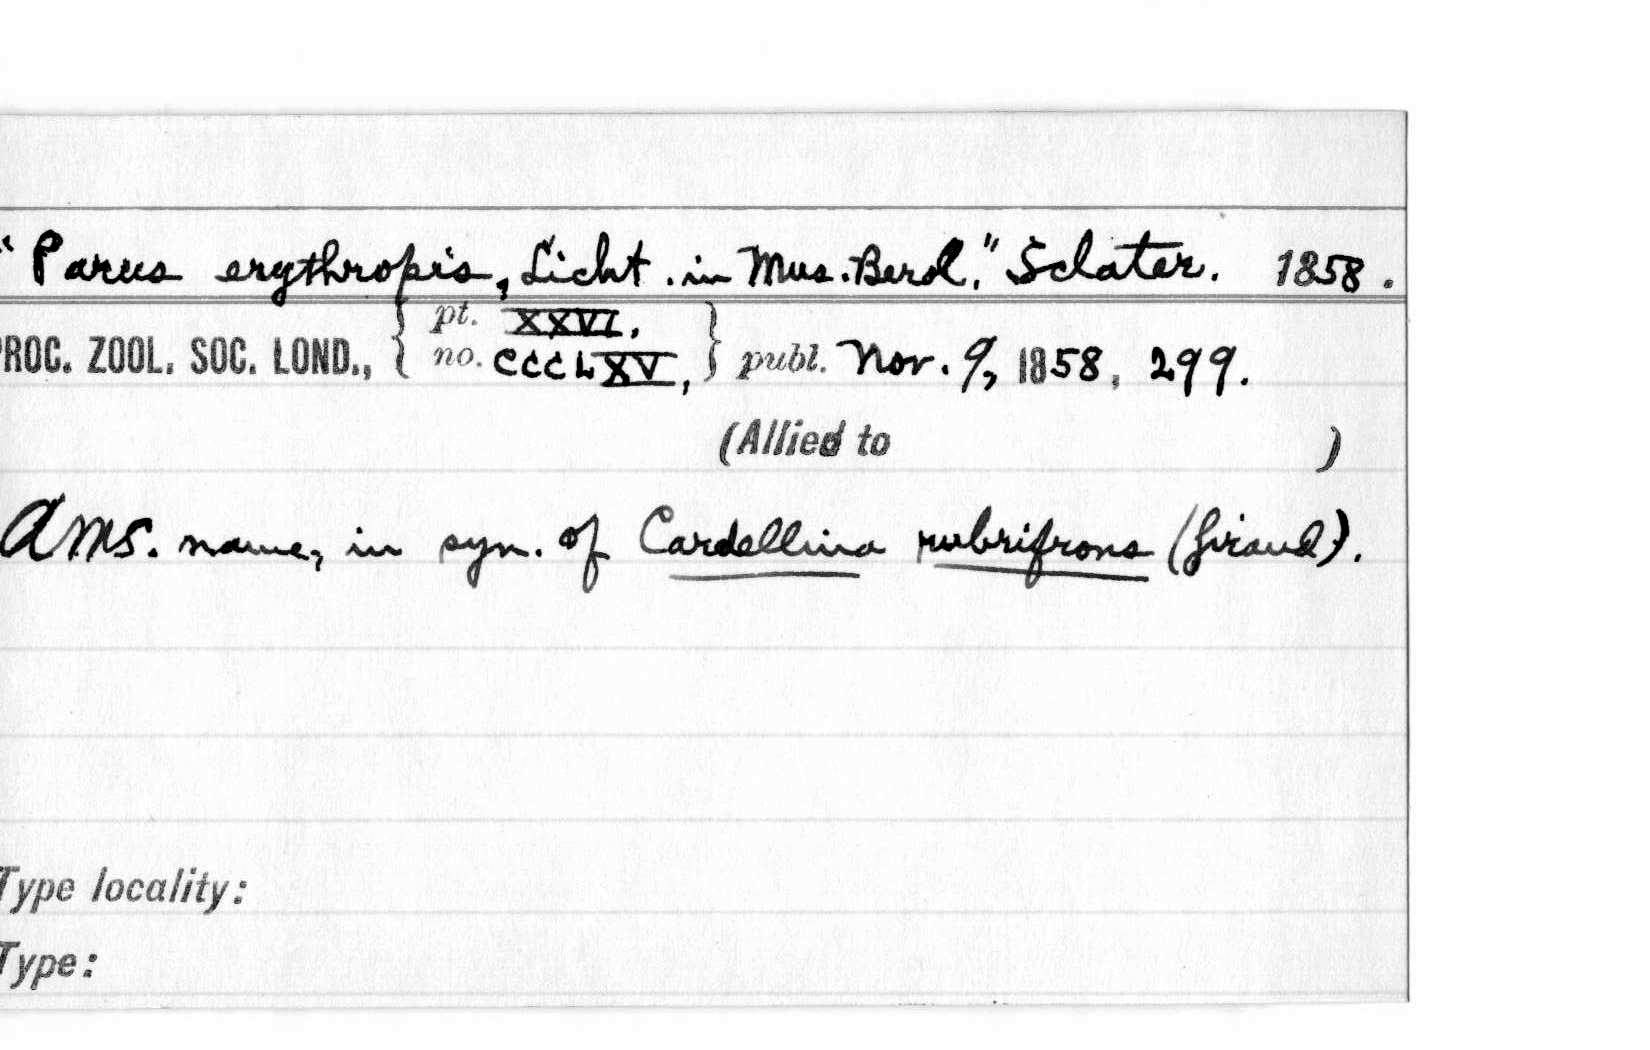 "Parus erythropis, Licht. in Mus. Berol." Sclater. 1858.
PROC. ZOOL. SOC. LOND., { pt. XXVI, no. CCCLXV, } publ. Nov. 9, 1858, 299.
(Allied to )
A MS. name, in syn. of Cardellina rubrifrons (Giraud).
Type locality:
Type: